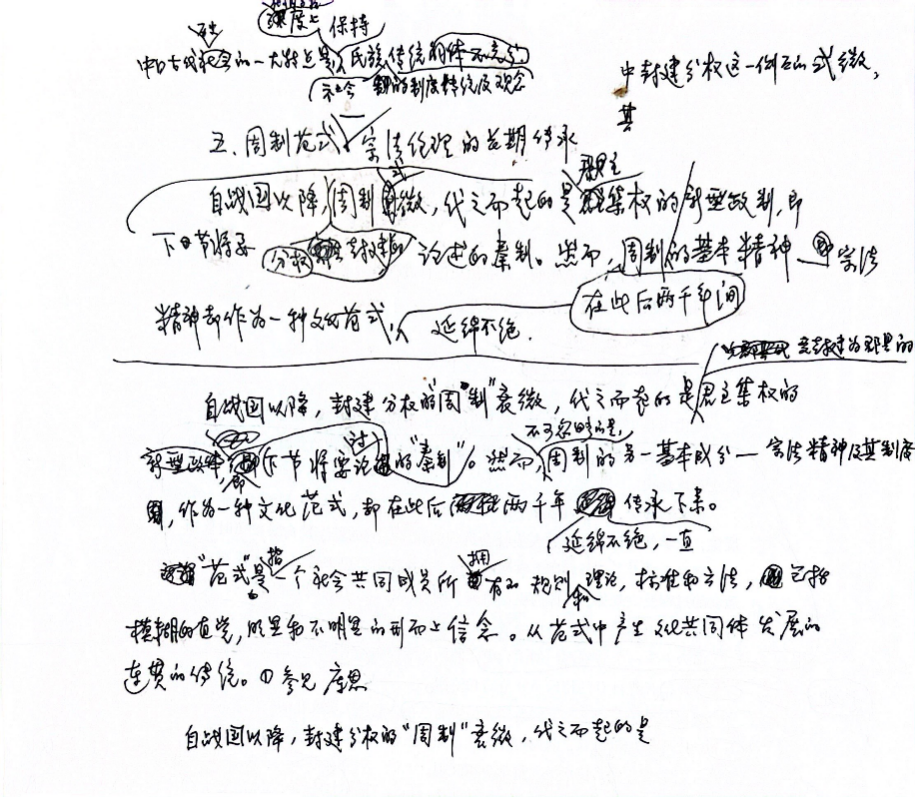 深度上 保持
中国古代社会的一大特点是 民族传统的
社会 制度
中封建分权这一侧面的式微,
其
五、周制范式—宗法伦理的长期传承
君主
自战国以降,周制式微,代之而起的是集权的新型政制,即
下一节将要 分权 论述的秦制。然而,周制的基本精神—宗法
在此后两千年间
精神却作为一种文化范式, 延绵不绝.
自战国以降,封建分权的“周制”衰微,代之而起的是君主集权的
不可忽略的是,
新型政体,即下节将要讨论的“秦制”。然而,周制的另一基本成分—宗法精神及其制度
,作为一种文化范式,却在此后两千年 传承下来。
延绵不绝,一直
“范式”是指一个社会共同成员所拥有的规则、理论,标准和方法,包括
模糊的直觉,明显和不明显的形而上信念。从范式中产生文化共同体发展的
连贯的传统。①参见库恩
自战国以降,封建分权的“周制”衰微,代之而起的是